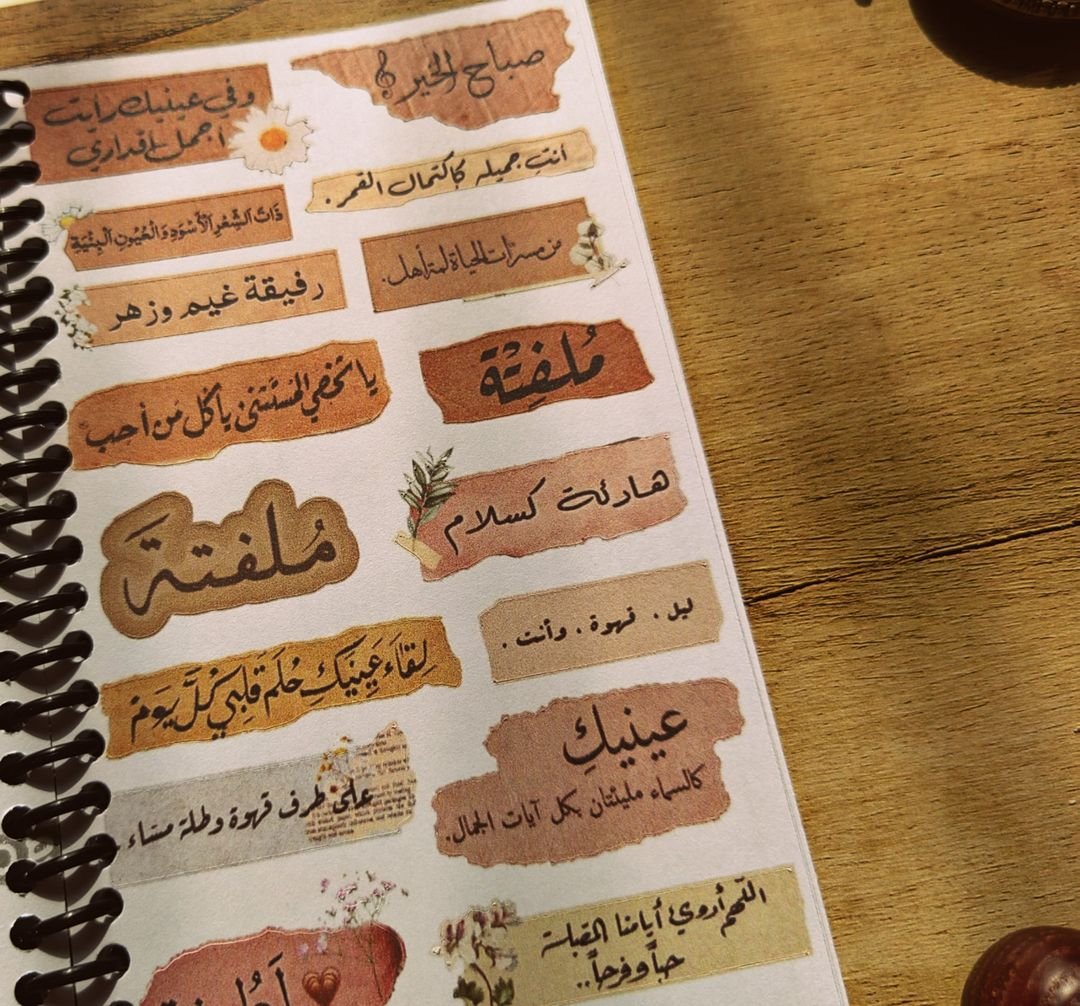 صباح الخير
وفي عينيك رايت
اجمل اقداري
انتِ جميله كاكتمال القمر.
ذَاتَ الشَّعْرِ الْأَسْوَدِ وَالْعُيُونِ الْبِنِّيَةِ
من مسرّات الحياة لمتراهل.
رفيقة غيم وزهر
يا تخفي المستثنى يا كل من أحب
مُلفِتْة
هادئة كسلام
مُلفتةَ
ليل . قهوة . وأنت .
لِقَاءَ عَيِنَيكِ حُلَمَ قَلِبي كُلَّ يَوَمْ
عينيكِ
كالسماء مليئتان بكل آيات الجمال.
على طرف قهوة وطلة مساء .
اللّهم أروي أيامنا القبلسة
حباً وفرحاً..